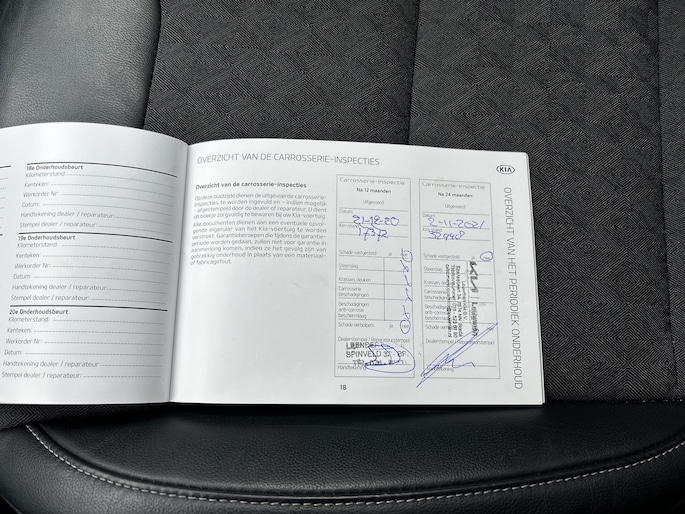 18e Onderhoudsbeurt
Kilometerstand:
Kenteken:
Werkorder Nr:
Datum:
Handtekening dealer / reparateur:
Stempel dealer / reparateur:
19e Onderhoudsbeurt
Kilometerstand:
Kenteken:
Werkorder Nr:
Datum:
Handtekening dealer / reparateur:
Stempel dealer / reparateur:
20e Onderhoudsbeurt
Kilometerstand:
Kenteken:
Werkorder Nr:
Datum:
Handtekening dealer / reparateur:
Stempel dealer / reparateur:
OVERZICHT VAN DE CARROSSERIE-INSPECTIES
KIA
Overzicht van de carrosserie-inspecties
Op deze bladzijde dienen de uitgevoerde carrosserie-
inspecties te worden ingevuld en - indien mogelijk
- afgestempeld door de dealer of reparateur. U dient
dit boekje zorgvuldig te bewaren bij uw Kia-voertuig.
Alle documenten dienen aan een eventuele opvol-
gende eigenaar van het Kia-voertuig te worden
verstrekt. Garantieberoepen die tijdens de garantie-
periode worden gedaan, zullen niet voor garantie in
aanmerking komen, indien ze het gevolg zijn van
gebrekkig onderhoud in plaats van een materiaal-
of fabricagefout.
Carrosserie-inspectie
Na 12 maanden
Uitgevoerd
Datum:
21-12-20
Km-stand:
17372
Schade vastgesteld: ja
Steenslag
Krassen, deuken
Carrosserie
beschadigingen
Beschadigingen
anti-corrosie
beschermlaag
Schade verholpen: ja
Dealerstempel / Reparateurstempel
SPINVELD 37
Handtekening
Carrosserie-inspectie
Na 24 maanden
Uitgevoerd
Datum:
2-11-2021
32940
Schade vastgesteld: ja
Steenslag
Krassen, deuken
Carrosserie
beschadigingen
Beschadigingen
anti-corrosie
beschermlaag
Schade verholpen:
Dealerstempel / Reparateurstempel
KIA
18
OVERZICHT VAN HET PERIODIEK ONDERHOUD